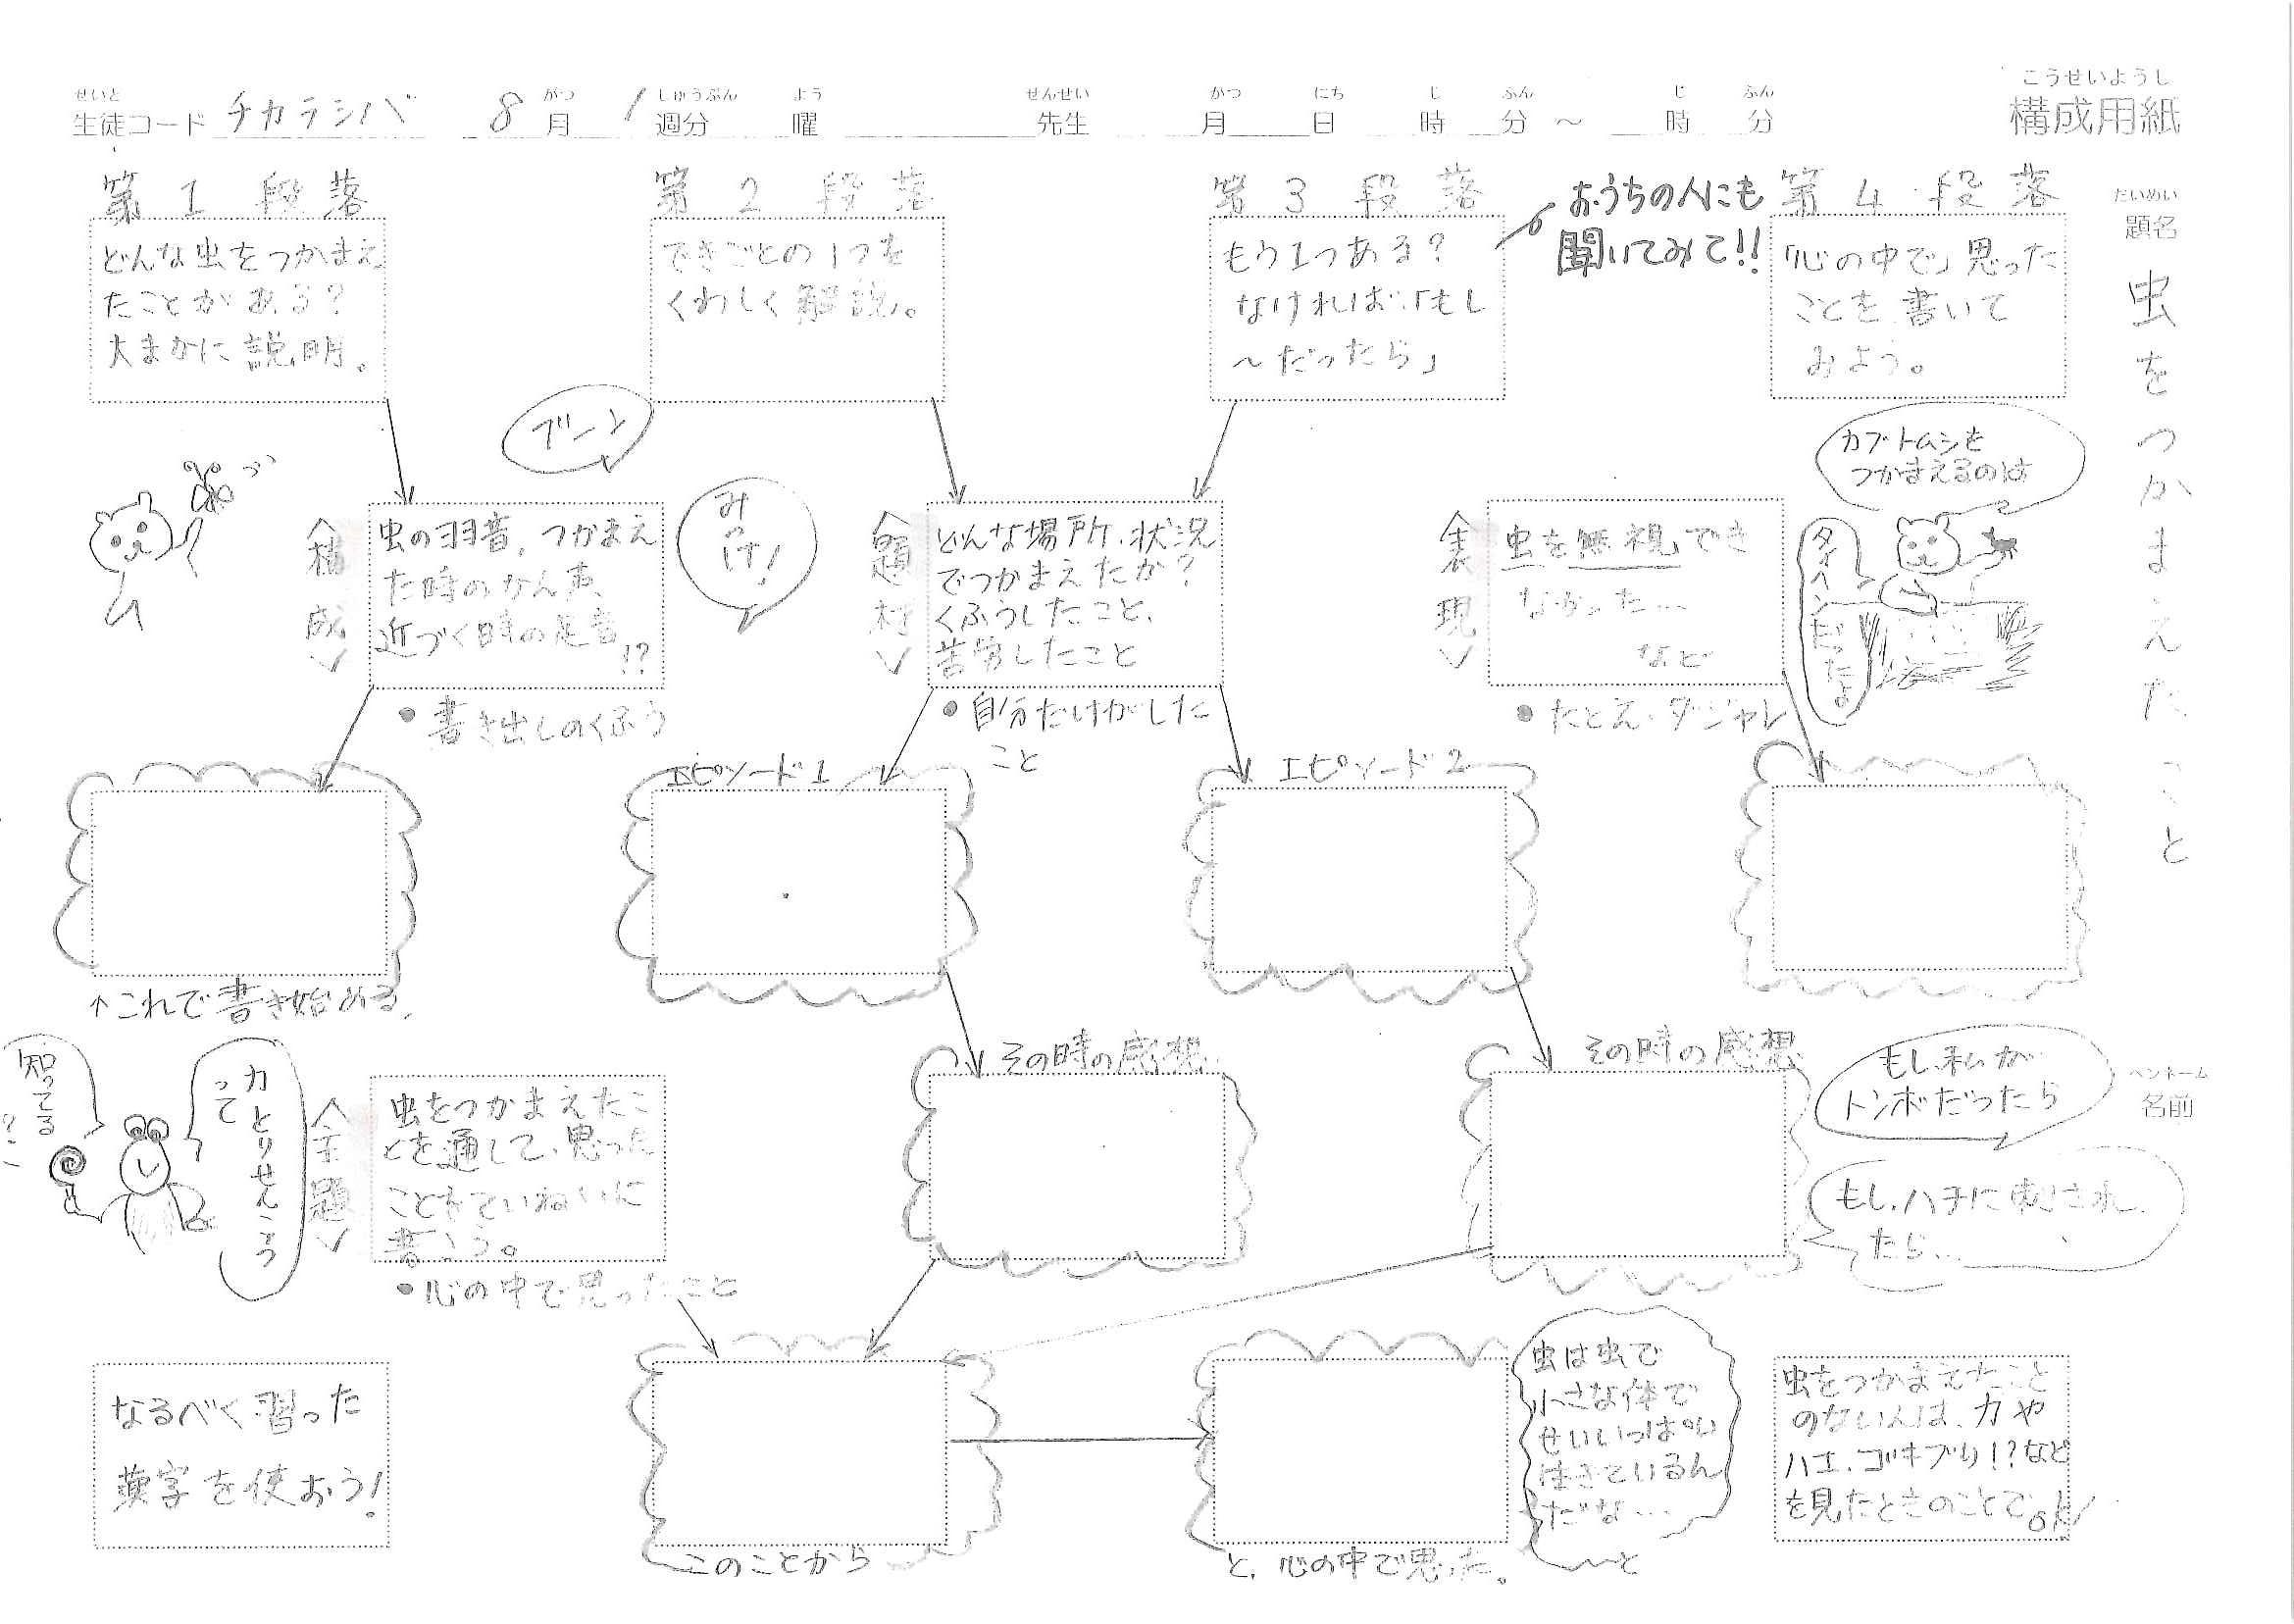 こうせいようし
構成用紙
せいと
生徒コード チカラシバ 8 がつ 月 1 しゅうぶん 週分 よう 曜 せんせい 先生 がつ 月 にち 日 じ 時 ふん 分 ～ じ 時 ふん 分
だいめい
題名
虫をつかまえたこと
第1段落
どんな虫をつかまえ
たことがある？
大まかに説明。
第2段落
できごとの1つを
くわしく解説。
第3段落
もう1つある？
なければ「もし
～だったら」
おうちの人にも
聞いてみて!!
第4段落
「心の中で」思った
ことを書いて
みよう。
ブーン
みっけ！
カブトムシを
つかまえるのは
タイヘンだったよ
〈構成〉
虫の羽音、つかまえ
た時のかん声、
近づく時の足音
!?
●書き出しのくふう
〈題材〉
どんな場所、状況
でつかまえたか？
くふうしたこと、
苦労したこと
●自分だけがした
こと
〈表現〉
虫を無視でき
なかった…
など
●たとえ・ダジャレ
エピソード1
エピソード2
↑これで書き始める。
知ってる？
カとりせんこう
って
〈主題〉
虫をつかまえたこ
とを通して、思った
ことをていねいに
書こう。
●心の中で思ったこと
その時の感想
その時の感想
もし、私が
トンボだったら
ペンネーム
名前
もし、ハチに刺され
たら…
なるべく習った
漢字を使おう！
このことから
と、心の中で思った。
虫は虫で
小さな体で
せいいっぱい
生きているん
だな…
～と
虫をつかまえたこと
のない人は、カや
ハエ、ゴキブリ!?など
を見たときのことでOK!